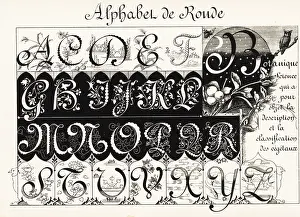 Alphabet de Ronde
A C D E F
G H I J K L
M N O P Q R
S T U V X Y Z
Botanique
Science
qui a
pour
objet la
description
et la
classification
des végétaux